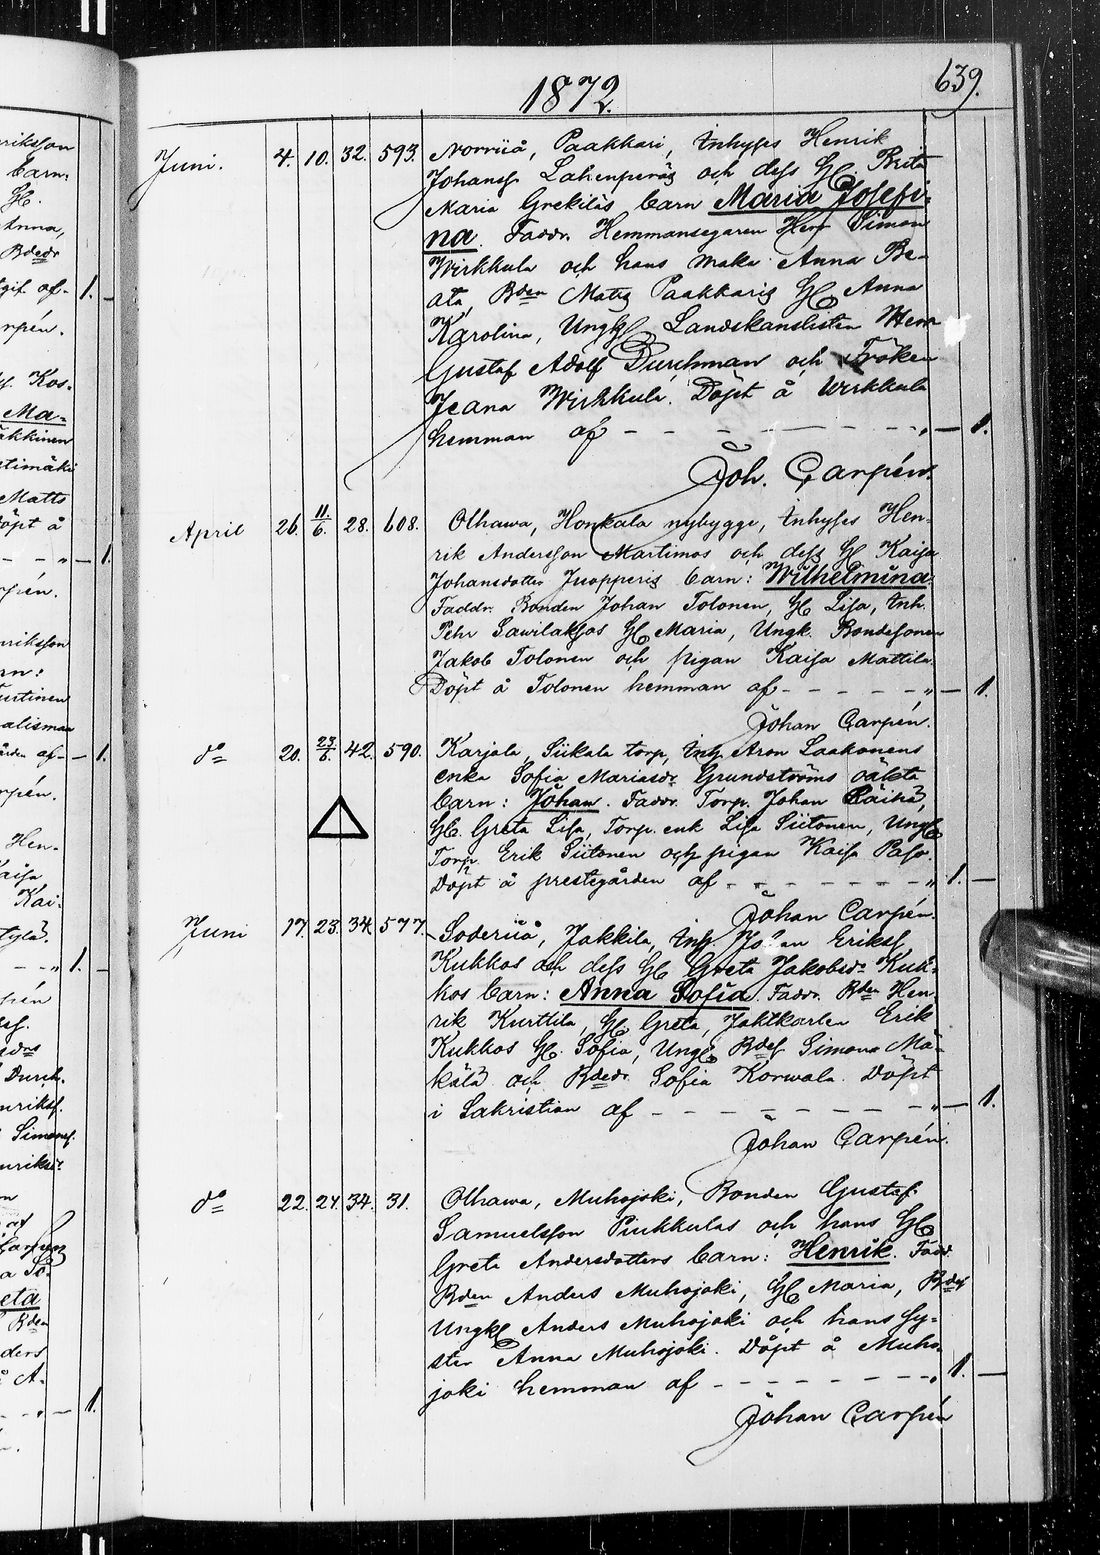 1872.
639.
Juni. 4. 10. 32. 593. Norriiå, Paakkari, Inhyses Henrik
Johanss. Lahenperäs och dess H. Brita
Maria Grekiläs barn Maria Josefi-
na. Faddr. Hemmansegaren Herr Simon
Wirkkula och hans maka Anna Be-
ata, Bden Mats Paakkaris H. Anna
Karolina, Ungk. Landskanslisten Herr
Gustaf Adolf Durchman och Fröken
Jeana Wirkkula. Döpt å Wirkkula
hemman af - - - - - - - " - 1.
Joh. Carpén.
April 26. 11./6. 28. 608. Olhawa, Honkala nybygge, Inhyses Hen-
rik Andersson Martimos och dess H. Kaisa
Johansdotter Juopperis barn: Wilhelmina.
Faddr. Bonden Johan Tolonen, H. Lisa, Inh.
Pehr Sawilaksos H. Maria, Ungk. Bondesonen
Jakob Tolonen och pigan Kaisa Mattila.
Döpt å Tolonen hemman af - - - - - " - 1.
Johan Carpén.
do 20. 23/6. 42. 590. Karjala, Siikala torp, Inh. Aron Laakonens
enka Sofia Mariasdr Grundströms oäkta
barn: Johan. Faddr. Torp. Johan Räihä,
H. Greta Lisa, Torp. enk. Lisa Siitonen, Ungk.
Torp. Erik Siitonen och pigan Kaisa Paso.
Döpt å prestegården af - - - - - - " 1. -
Johan Carpén.
Juni 17. 23. 34. 577. Söderiiå, Jakkila, Inh. Johan Erikss.
Kukkos och dess H. Greta Jakobsdr Kuk-
kos barn: Anna Sofia. Faddr. Bden Hen-
rik Kurttila, H. Greta, Jaktkarlen Erik
Kukkos H. Sofia, Ungk. Bdes. Simona Mä-
kälä och Bdedr. Sofia Korwala. Döpt
i Sakristian af - - - - - - - " - 1.
Johan Carpén.
do 22. 24. 34. 31. Olhawa, Muhojoki, Bonden Gustaf
Samuelsson Piukkulas och hans H.
Greta Andersdotters barn: Henrik. Fadd.
Bden Anders Muhojoki, H. Maria, Bdes.
Ungk. Anders Muhojoki och hans Sy-
ster Anna Muhojoki. Döpt å Muho-
joki hemman af - - - - - - - " 1. -
Johan Carpén